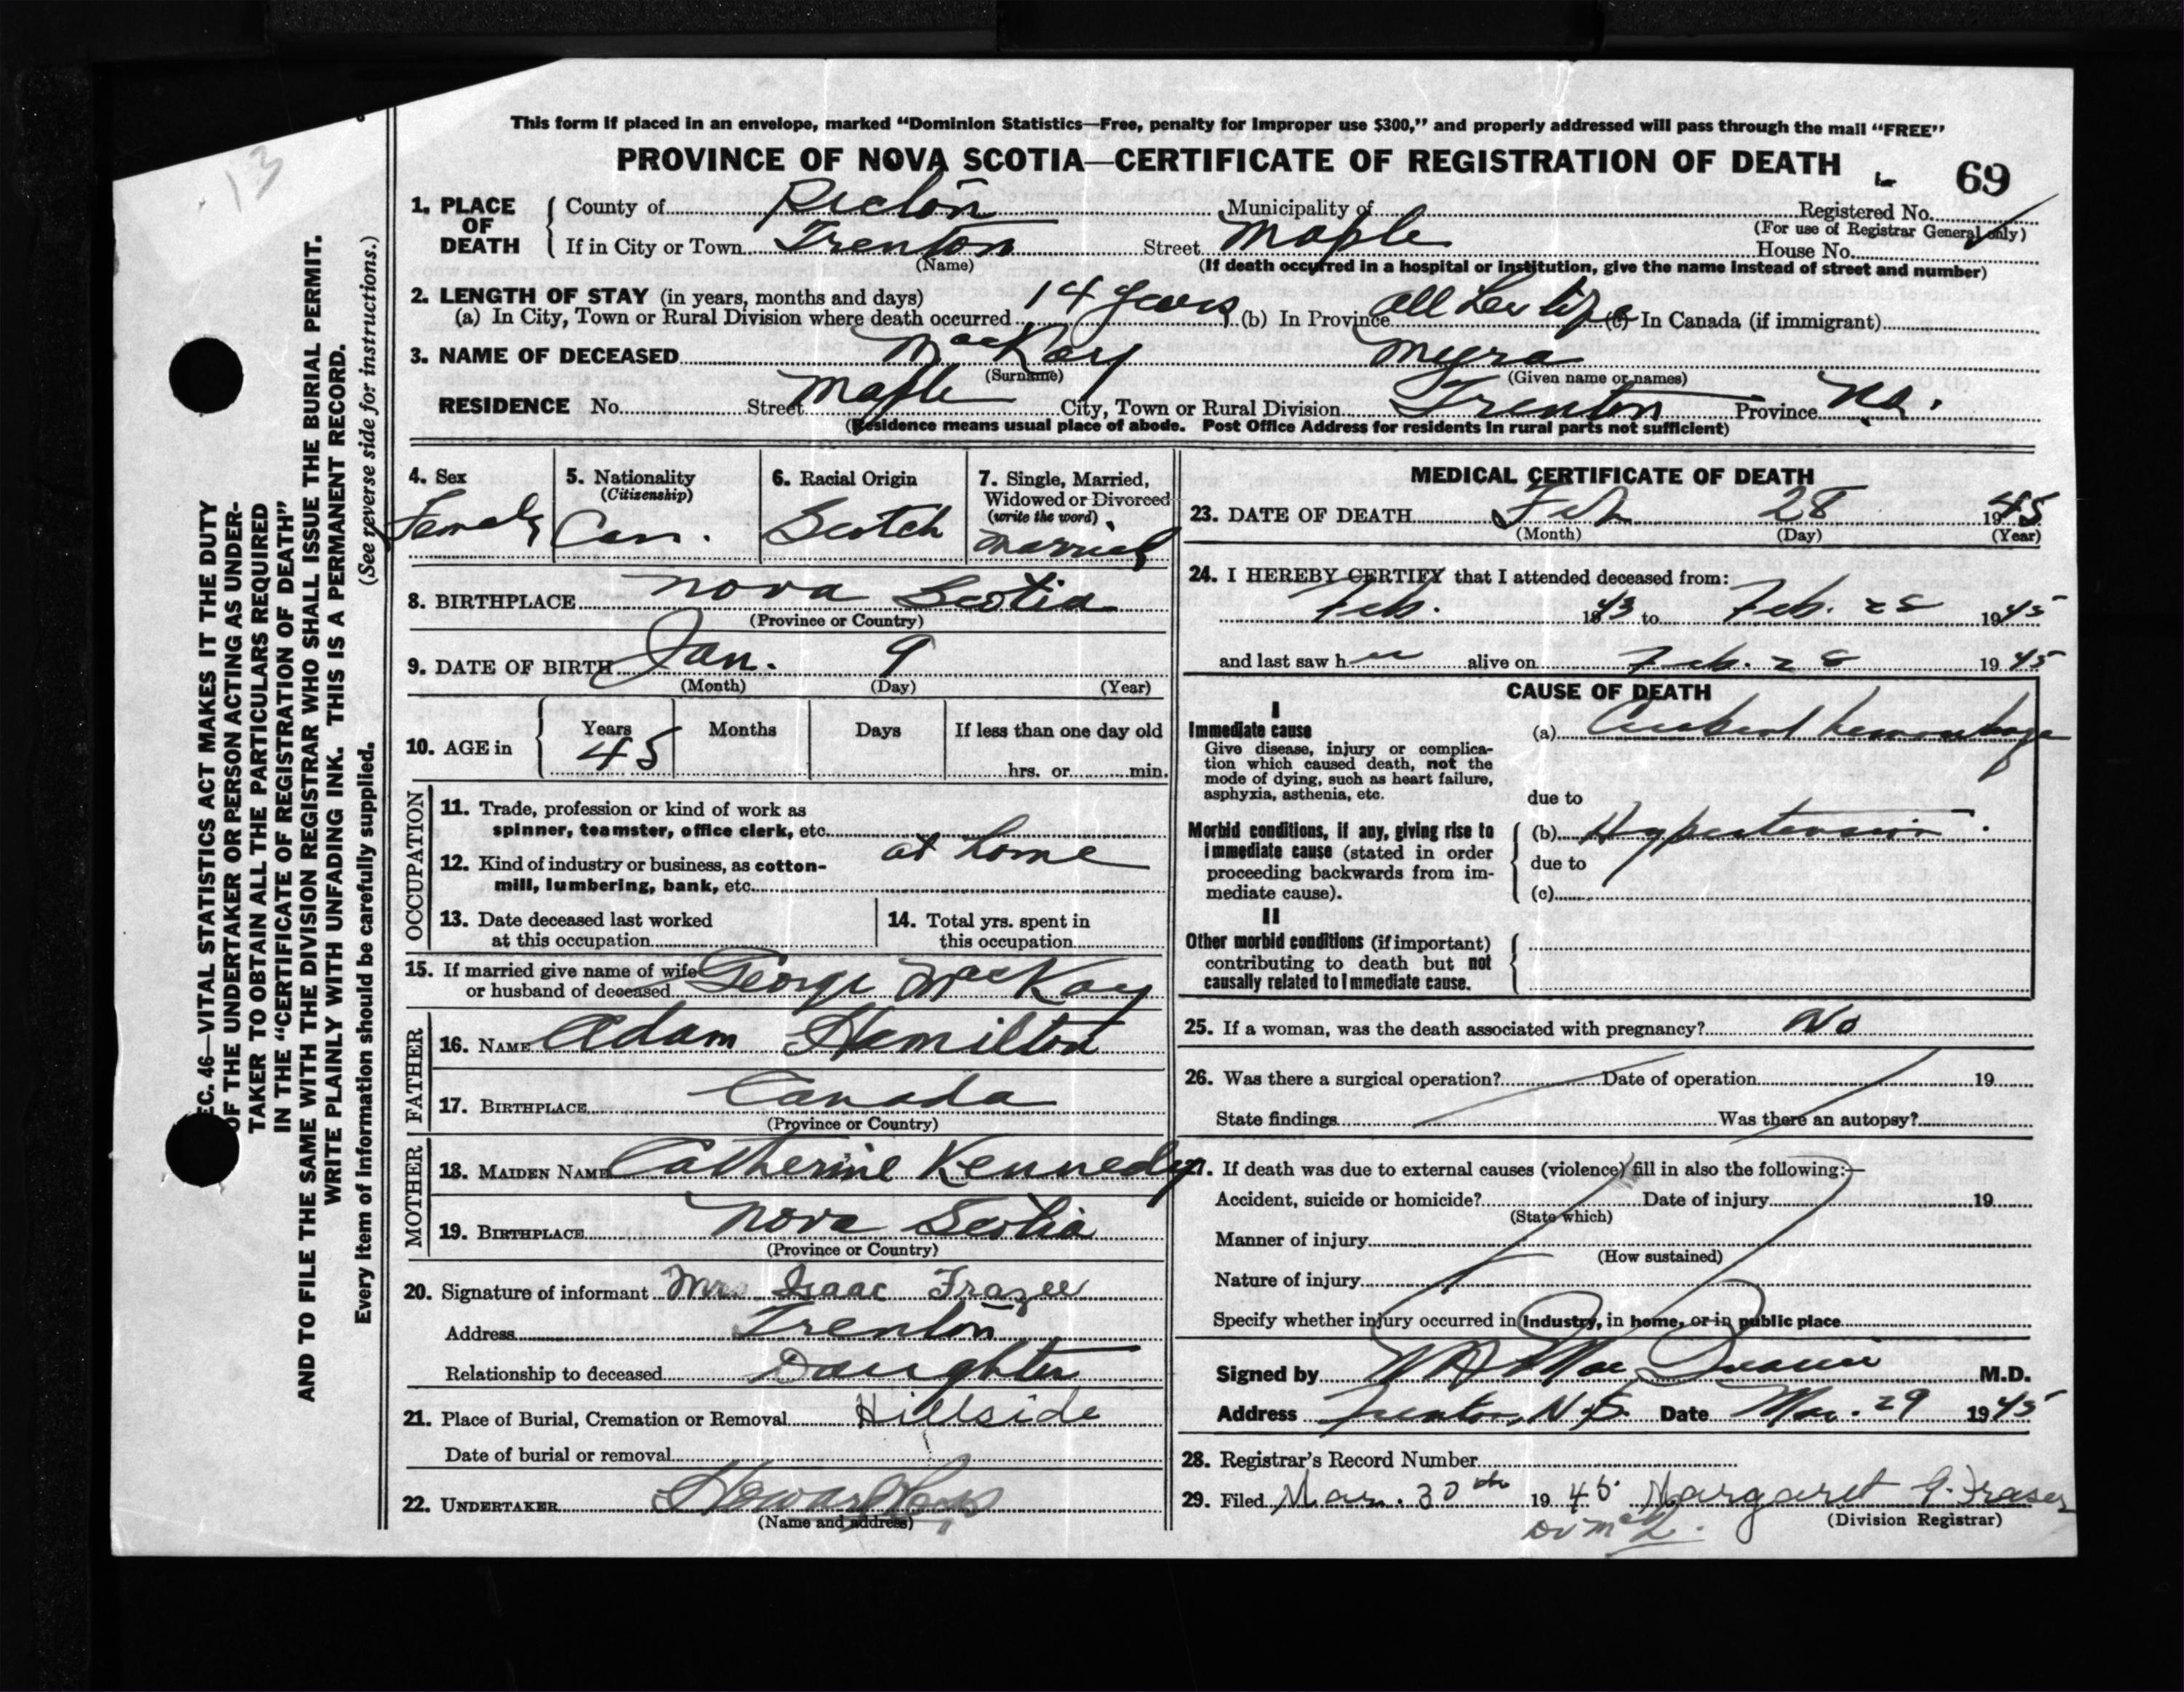 13
This form if placed in an envelope, marked "Dominion Statistics—Free, penalty for improper use $300," and properly addressed will pass through the mail "FREE"
PROVINCE OF NOVA SCOTIA—CERTIFICATE OF REGISTRATION OF DEATH
69
1. PLACE OF DEATH County of Pictou Municipality of Registered No.
(For use of Registrar General only)
If in City or Town Trenton Street Maple House No.
(Name) (If death occurred in a hospital or institution, give the name instead of street and number)
2. LENGTH OF STAY (in years, months and days)
(a) In City, Town or Rural Division where death occurred 14 years (b) In Province all her life (c) In Canada (if immigrant)
3. NAME OF DECEASED MacKay Myra
(Surname) (Given name or names)
RESIDENCE No. Street Maple City, Town or Rural Division Trenton Province N.S.
(Residence means usual place of abode. Post Office Address for residents in rural parts not sufficient)
4. Sex Female
5. Nationality (Citizenship) Can.
6. Racial Origin Scotch
7. Single, Married, Widowed or Divorced (write the word) Married
8. BIRTHPLACE Nova Scotia
(Province or Country)
9. DATE OF BIRTH Jan. 9
(Month) (Day) (Year)
10. AGE in Years 45 Months Days If less than one day old
hrs. or min.
OCCUPATION
11. Trade, profession or kind of work as
spinner, teamster, office clerk, etc.
at home
12. Kind of industry or business, as cotton-
mill, lumbering, bank, etc.
13. Date deceased last worked
at this occupation
14. Total yrs. spent in
this occupation
15. If married give name of wife
or husband of deceased George MacKay
FATHER
16. NAME Adam Hamilton
17. BIRTHPLACE Canada
(Province or Country)
MOTHER
18. MAIDEN NAME Catherine Kennedy
19. BIRTHPLACE Nova Scotia
(Province or Country)
20. Signature of informant Mrs Isaac Frazee
Address Trenton
Relationship to deceased Daughter
21. Place of Burial, Cremation or Removal Hillside
Date of burial or removal
22. UNDERTAKER Howard
(Name and address)
MEDICAL CERTIFICATE OF DEATH
23. DATE OF DEATH Feb 28 1945
(Month) (Day) (Year)
24. I HEREBY CERTIFY that I attended deceased from:
Feb. 1943 to Feb. 28 1945
and last saw her alive on Feb. 28 1945
CAUSE OF DEATH
I
Immediate cause
Give disease, injury or complica-
tion which caused death, not the
mode of dying, such as heart failure,
asphyxia, asthenia, etc.
(a) Cerebral hemorrhage
due to
Morbid conditions, if any, giving rise to
immediate cause (stated in order
proceeding backwards from im-
mediate cause).
(b) Hypertension
due to
(c)
II
Other morbid conditions (if important)
contributing to death but not
causally related to immediate cause.
25. If a woman, was the death associated with pregnancy? No
26. Was there a surgical operation? Date of operation 19
State findings Was there an autopsy?
27. If death was due to external causes (violence) fill in also the following:—
Accident, suicide or homicide? Date of injury 19
(State which)
Manner of injury
(How sustained)
Nature of injury
Specify whether injury occurred in Industry, in home, or in public place
Signed by M.D.
Address Trenton, N.S. Date Mar. 29 1945
28. Registrar's Record Number
29. Filed Mar. 30th 1945 Margaret J. Fraser
(Division Registrar)
SEC. 46—VITAL STATISTICS ACT MAKES IT THE DUTY
OF THE UNDERTAKER OR PERSON ACTING AS UNDER-
TAKER TO OBTAIN ALL THE PARTICULARS REQUIRED
IN THE "CERTIFICATE OF REGISTRATION OF DEATH"
AND TO FILE THE SAME WITH THE DIVISION REGISTRAR WHO SHALL ISSUE THE BURIAL PERMIT.
WRITE PLAINLY WITH UNFADING INK. THIS IS A PERMANENT RECORD.
Every item of information should be carefully supplied. (See reverse side for instructions.)